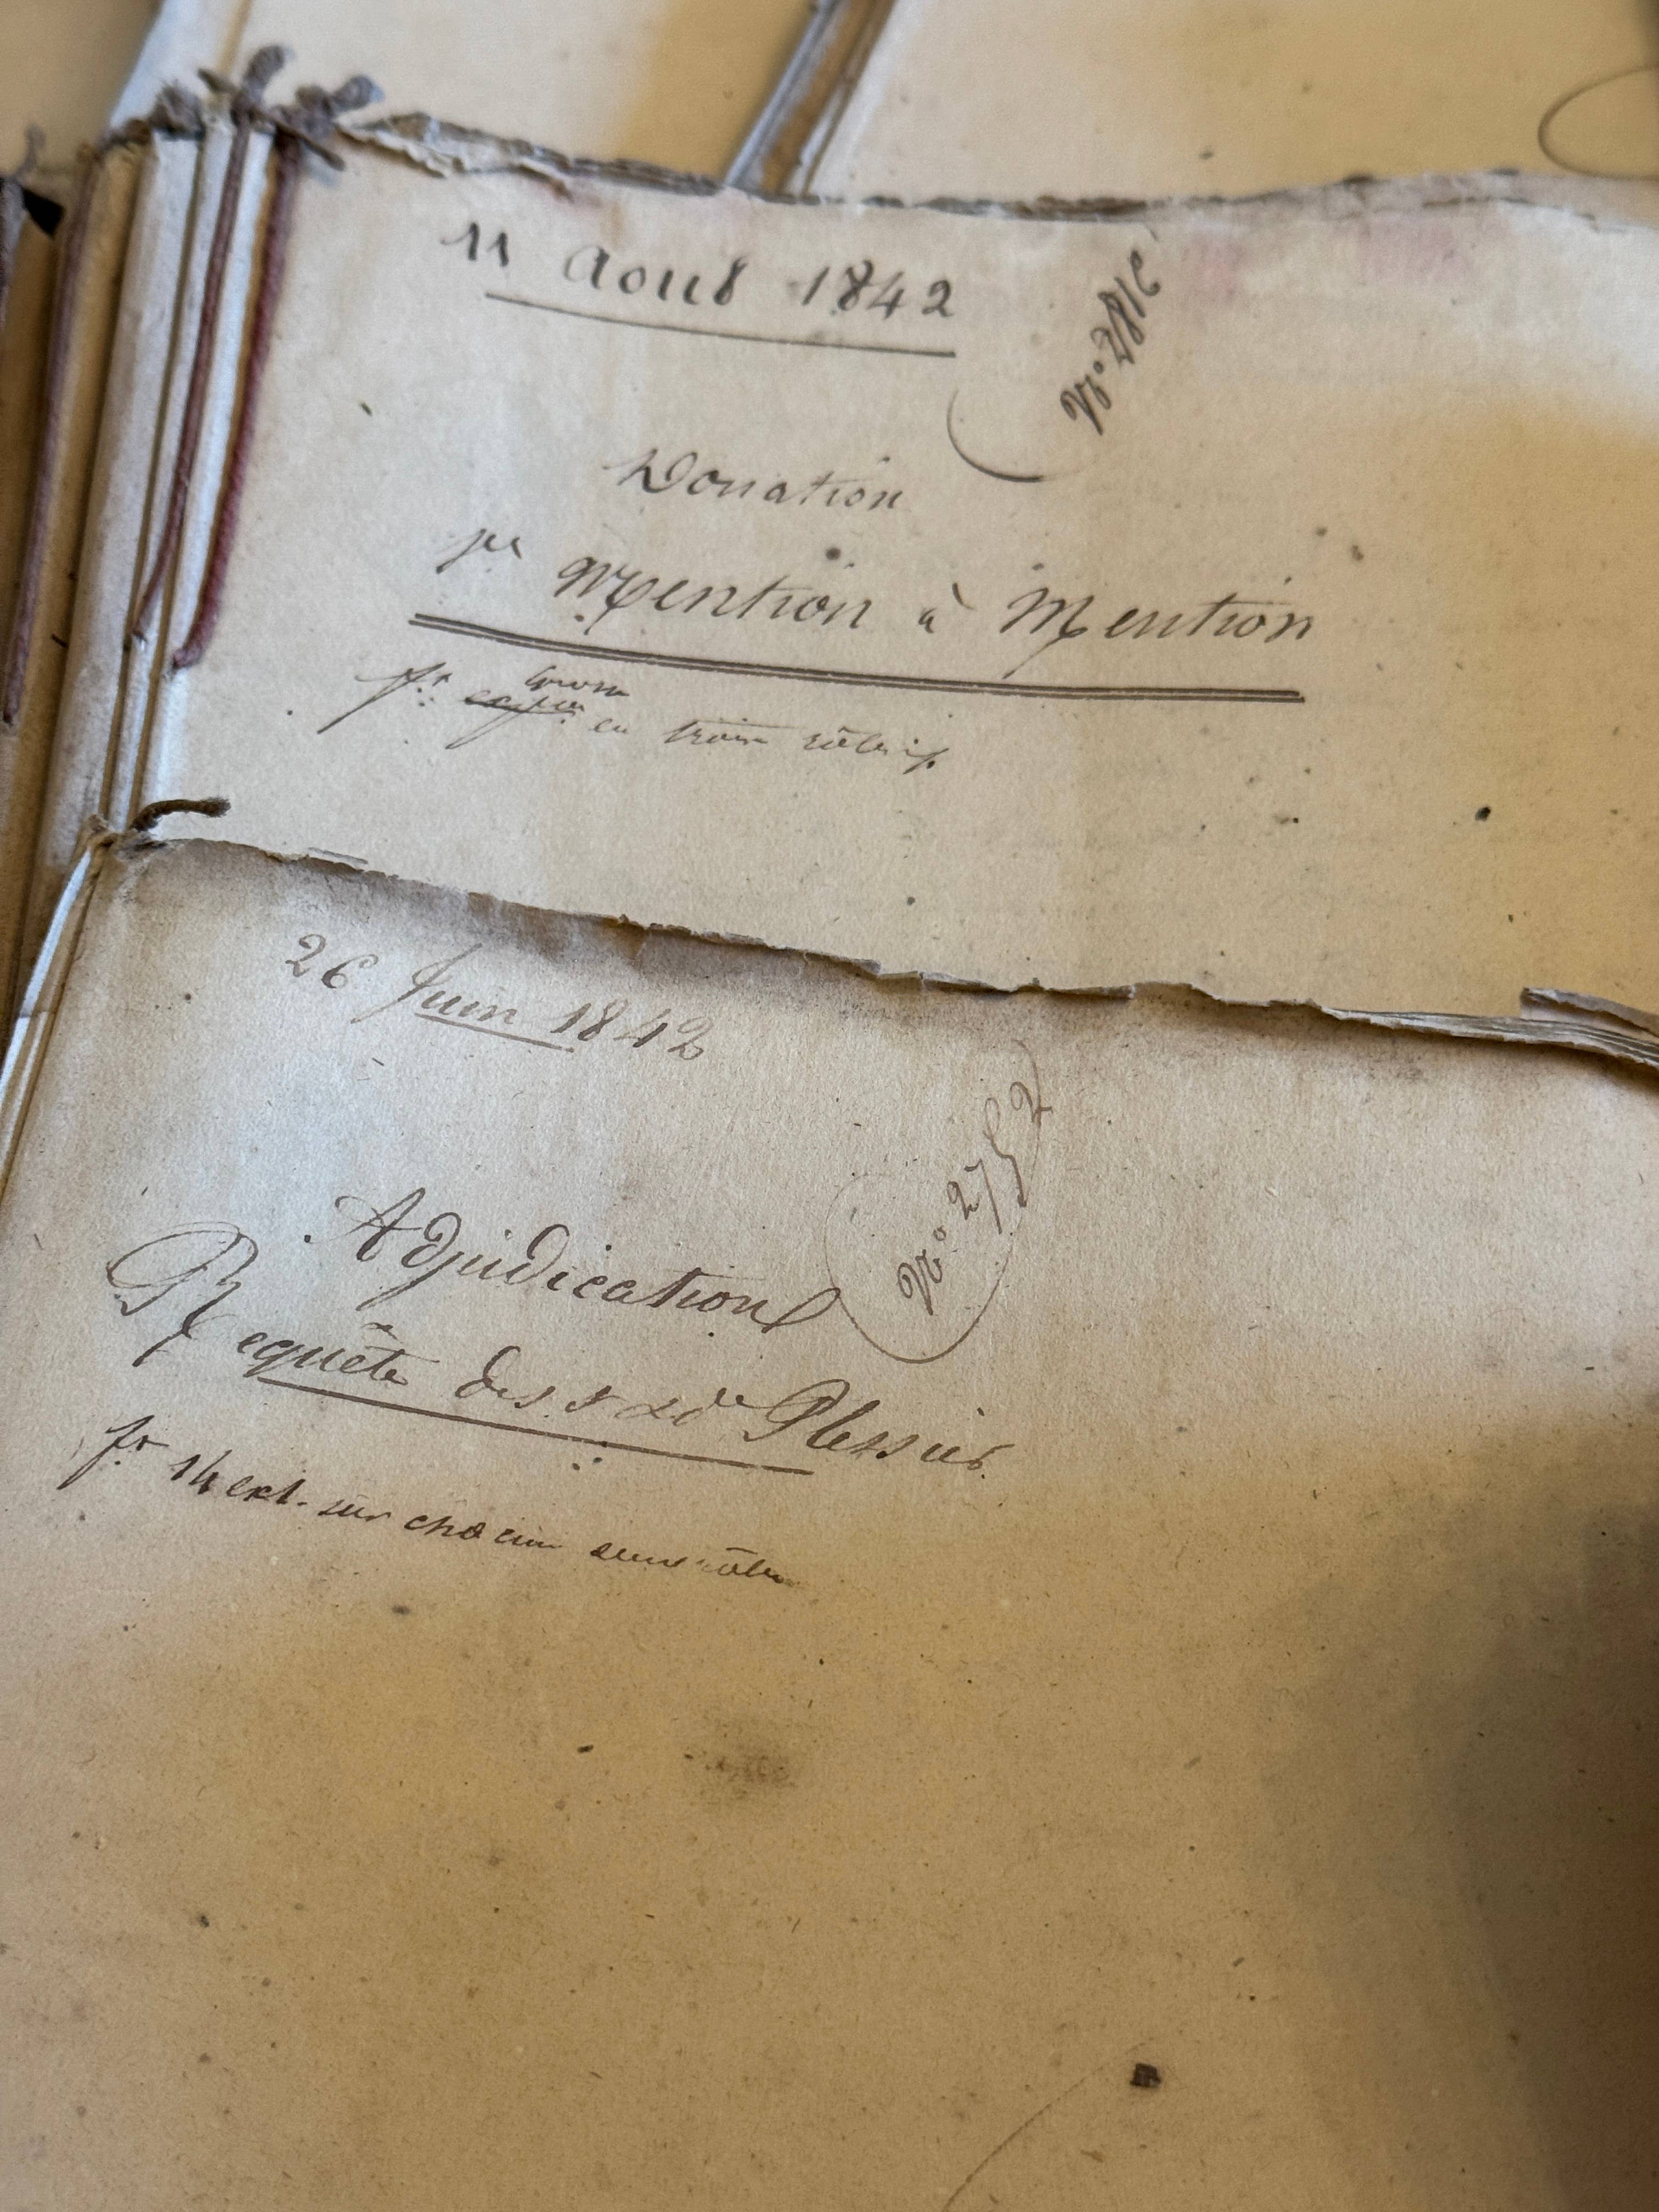 11 Aout 1842
Donation
pr Mention à Mention
fr grosse en trois rôles
26 Juin 1842
N° 2752
Adjudication
Requête des Plessis
fr 14 ext. sur chacun rôle